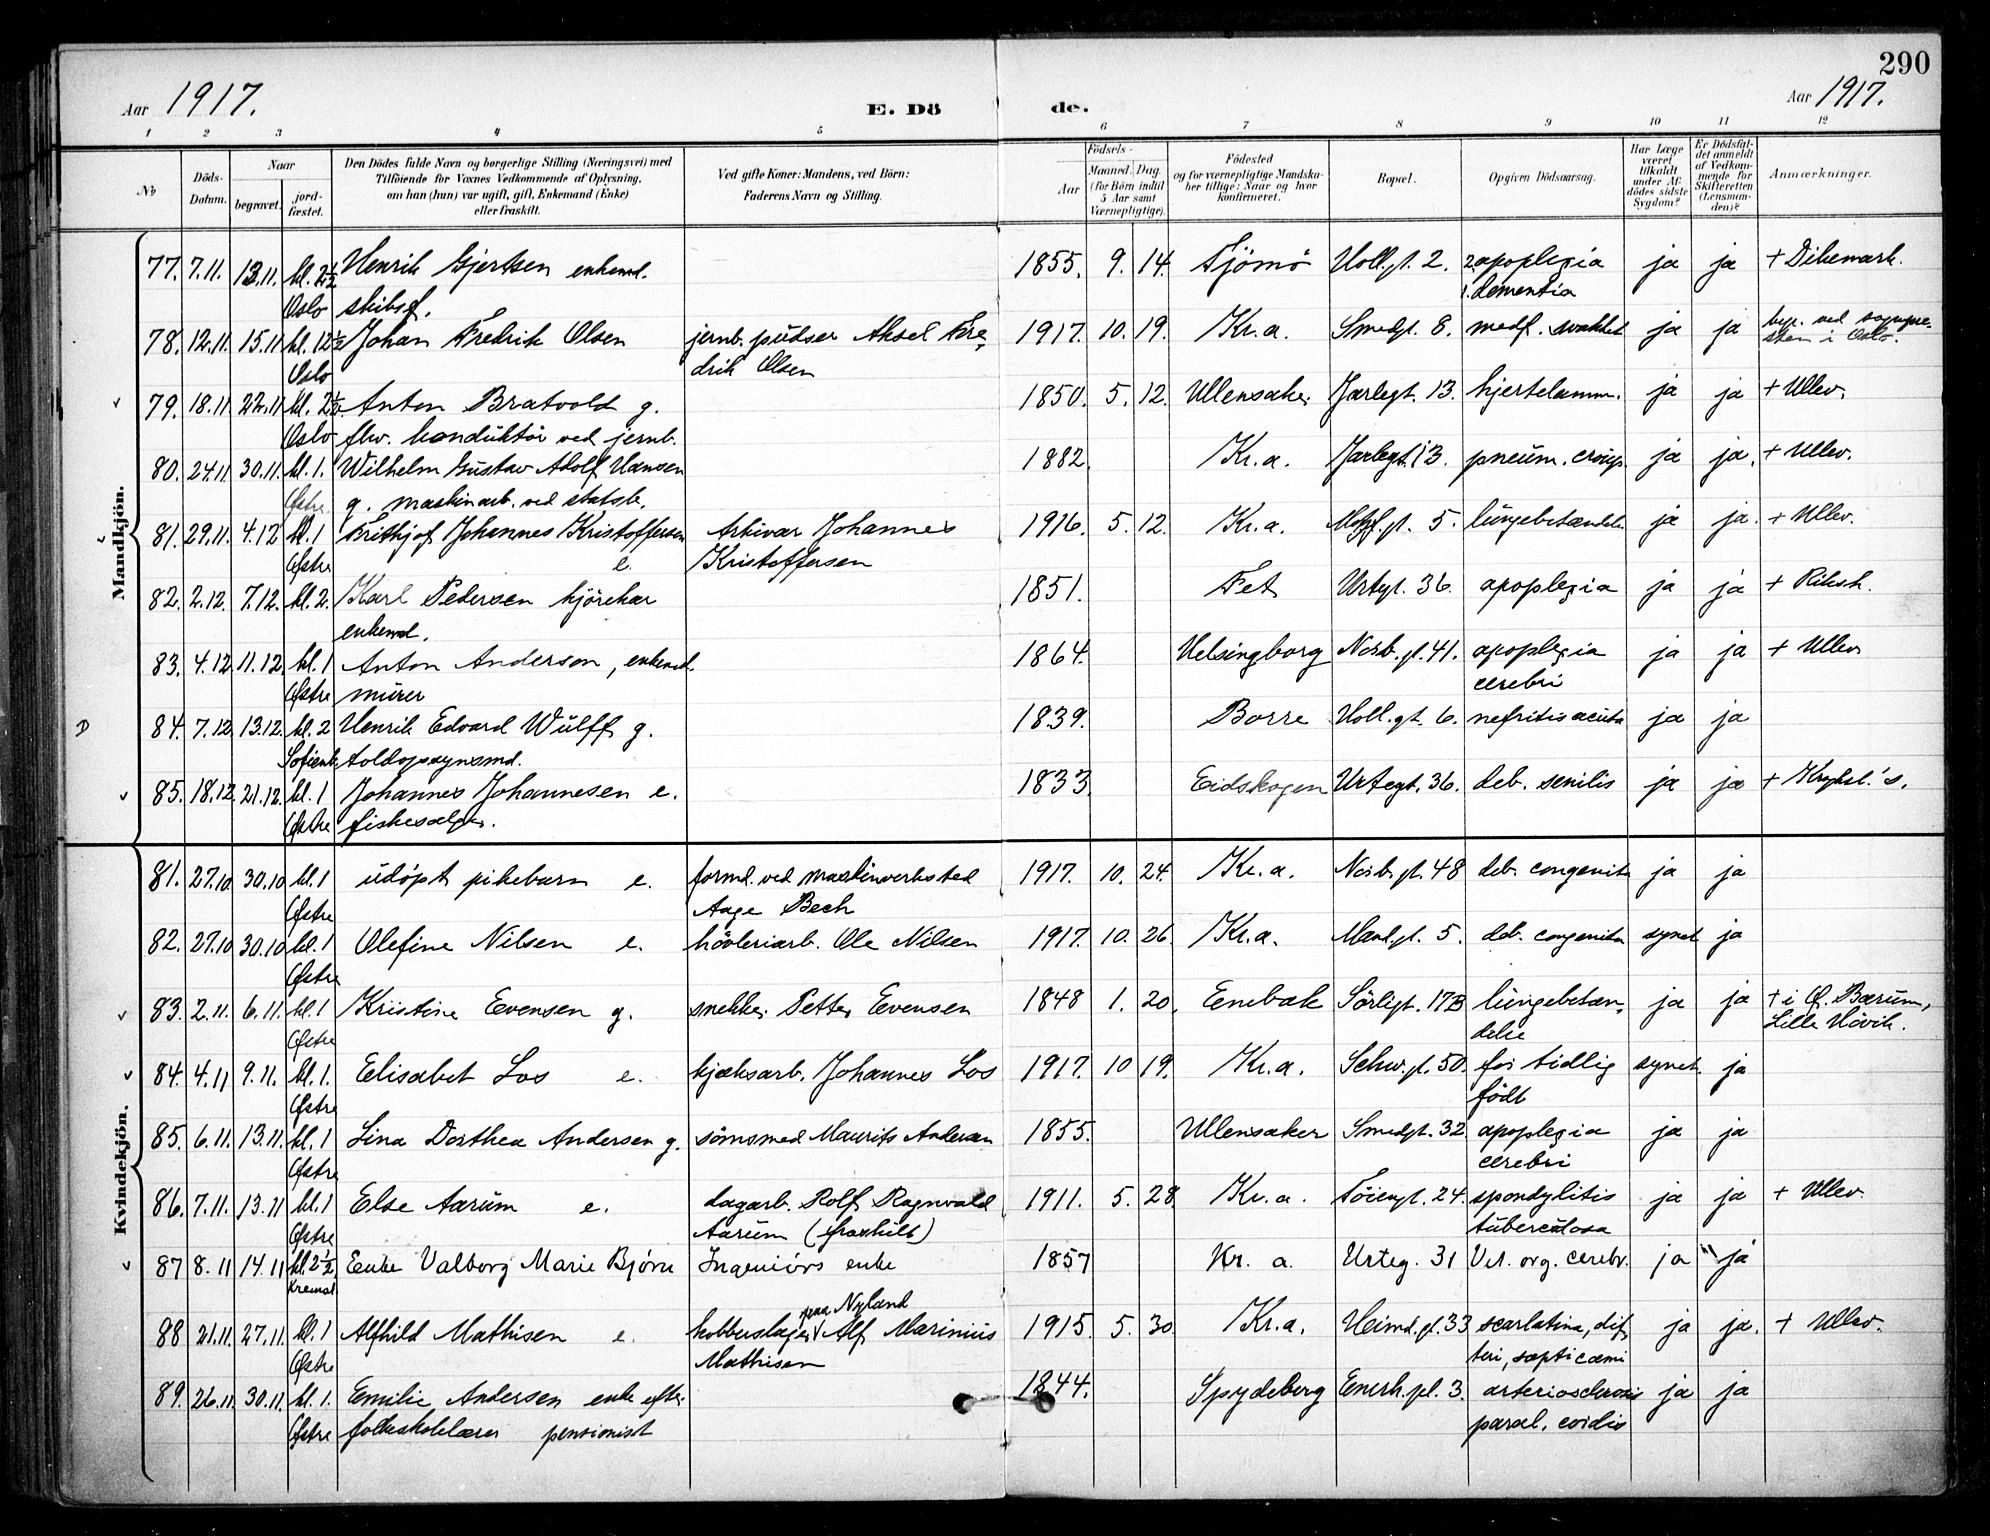 290
Aar 1917.
E. Dö
de.
Aar 1917.
1 2 3 4 5 6 7 8 9 10 11 12
No
Döds-Datum.
Naar
begravet.
jord-fæstet.
Den Dödes fulde Navn og borgerlige Stilling (Næringsvei) med
Tilföiende for Voxnes Vedkommende af Oplysning,
om han (hun) var ugift, gift, Enkemand (Enke)
eller fraskilt.
Ved gifte Koner: Mandens, ved Börn:
Faderens Navn og Stilling.
Födsels-
Aar
Maaned. Dag.
(for Börn indtil
5 Aar samt
Værnepligtige).
Födested
og for værnepligtige Mandska-
ber tillige: Naar og hvor
konfirmeret.
Bopæl.
Opgiven Dödsaarsag.
Har Læge
været
tilkaldt
under Af-
dödes sidste
Sygdom?
Er Dödsfal-
det anmeldt
af Vedkom-
mende for
Skifteretten
(Lensman-
den)?
Anmærkninger.
Mandkjön.
77. 7.11. 13.11. kl. 2½ Henrik Gjertsen enkemd. 1855. 9. 14. Tjömö Holl.gt. 2. 2. apoplexia ja ja + Dikemark.
Oslo skibsf. 1. dementia
78. 12.11 15.11 kl. 12½ Johan Fredrik Olsen jernb. pudser Aksel Fre- 1917. 10. 19. Kr.a. Smedgt. 8. medf. svakhet ja ja beg. ved sognepre-
Oslo drik Olsen sten i Oslo.
79. 18.11 22.11 kl. 2½ Anton Bratvold g. 1850. 5. 12. Ullensaker Jarlegt. 13. hjertelamm. ja ja + Ullev.
Oslo fhv. konduktör ved jernb.
80. 24.11 30.11. kl. 1. Wilhelm Gustav Adolf Hansen 1882. Kr.a. Jarlegt. 13. pneum. croup. ja ja. + Ullev.
Østre. g. maskinarb. ved statsb.
81. 29.11. 4.12 kl. 1 Frithjof Johannes Kristoffersen Arkivar Johannes 1916. 5. 12. Kr.a. gt. 5. lungebetændelse ja ja. + Ullev.
Østre e. Kristoffersen
82. 2.12. 7.12. kl. 2. Karl Pedersen kjörekar 1851. Fet Urtegt. 36. apoplexia ja ja + Riksh.
enkemd.
83. 4.12 11.12. kl. 1 Anton Anderson, enkemd. 1864. Helsingborg Norb.gt. 41. apoplexia ja ja + Ullev
Østre murer cerebri
D 84. 7.12. 13.12. kl. 2 Henrik Edvard Wulff g. 1839. Borre Holl.gt. 6. nefritis acuta ja ja
Sofienb. toldopsynsmd.
85. 18.12. 21.12. kl. 1 Johannes Johannesen e. 1833. Eidskogen Urtegt. 36. deb. senilis ja ja + Krohst.'s.
Østre fiskesælger.
Kvindekjön.
81. 27.10 30.10 kl. 1 udöpt pikebarn e. formd. ved maskinverksted 1917. 10. 24. Kr.a. Norb.gt. 48 deb. congenita ja ja
Østre Aage Bech
82. 27.10 30.10 kl. 1 Olefine Nilsen e. hövleriarb. Ole Nilsen 1917. 10. 26. Kr.a. Mand.gt. 5. deb. congenita synet ja
Østre
83. 2.11. 6.11. kl. 1 Kristine Evensen g. snekker Petter Evensen 1848 1. 20. Enebak Sörligt. 17B lungebetæn- ja ja + i Ø. Bærum,
Østre delse Lille Hövik.
84. 4.11 9.11. kl. 1. Elisabet Los e. kjæksarb. Johannes Los 1917. 10 19. Kr.a. Schw.gt. 50. for tidlig synet. ja
Østre födt
85. 6.11. 13.11. kl. 1 Lina Dorthea Andersen g. sömsmed Maurits Andersen 1855. Ullensaker Smedgt. 32. apoplexia ja ja
Østre cerebri
86. 7.11. 13.11 kl. 1 Else Aarum e. dagarb. Rolf Ragnvald 1911. 5. 28. Kr.a. Töiengt. 24. spondylitis ja ja + Ullev.
Østre Aarum (fraskilt) tuberculosa
87 8.11 14.11 kl. 2½ Enke Valborg Marie Bjørn Ingeniörs enke 1857 Kr. a. Urteg. 31 Vit. org. cerebr. ja " ja
Kremat.
paa Nyland
88 21.11. 27.11. kl. 1 Alfhild Mathisen e. kobberslager Alf Marinius 1915. 5. 30 Kr.a. Heimd.gt. 33 scarlatina, dif- ja ja. + Ullev.
Østre Mathisen teri, septicæmi
89. 26.11. 30.11. kl. 1. Emilie Andersen enke efter 1844. Spydeberg Enerh.pl. 3. arteriosclerosis ja ja
Østre folkeskolelærer pensionist paral. cordis